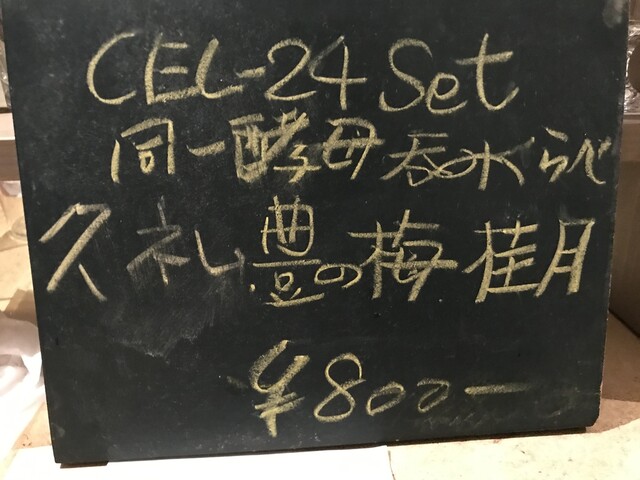 CEL-24 Set
同一酵母呑みくらべ
久礼 豊の梅 桂月
¥800-